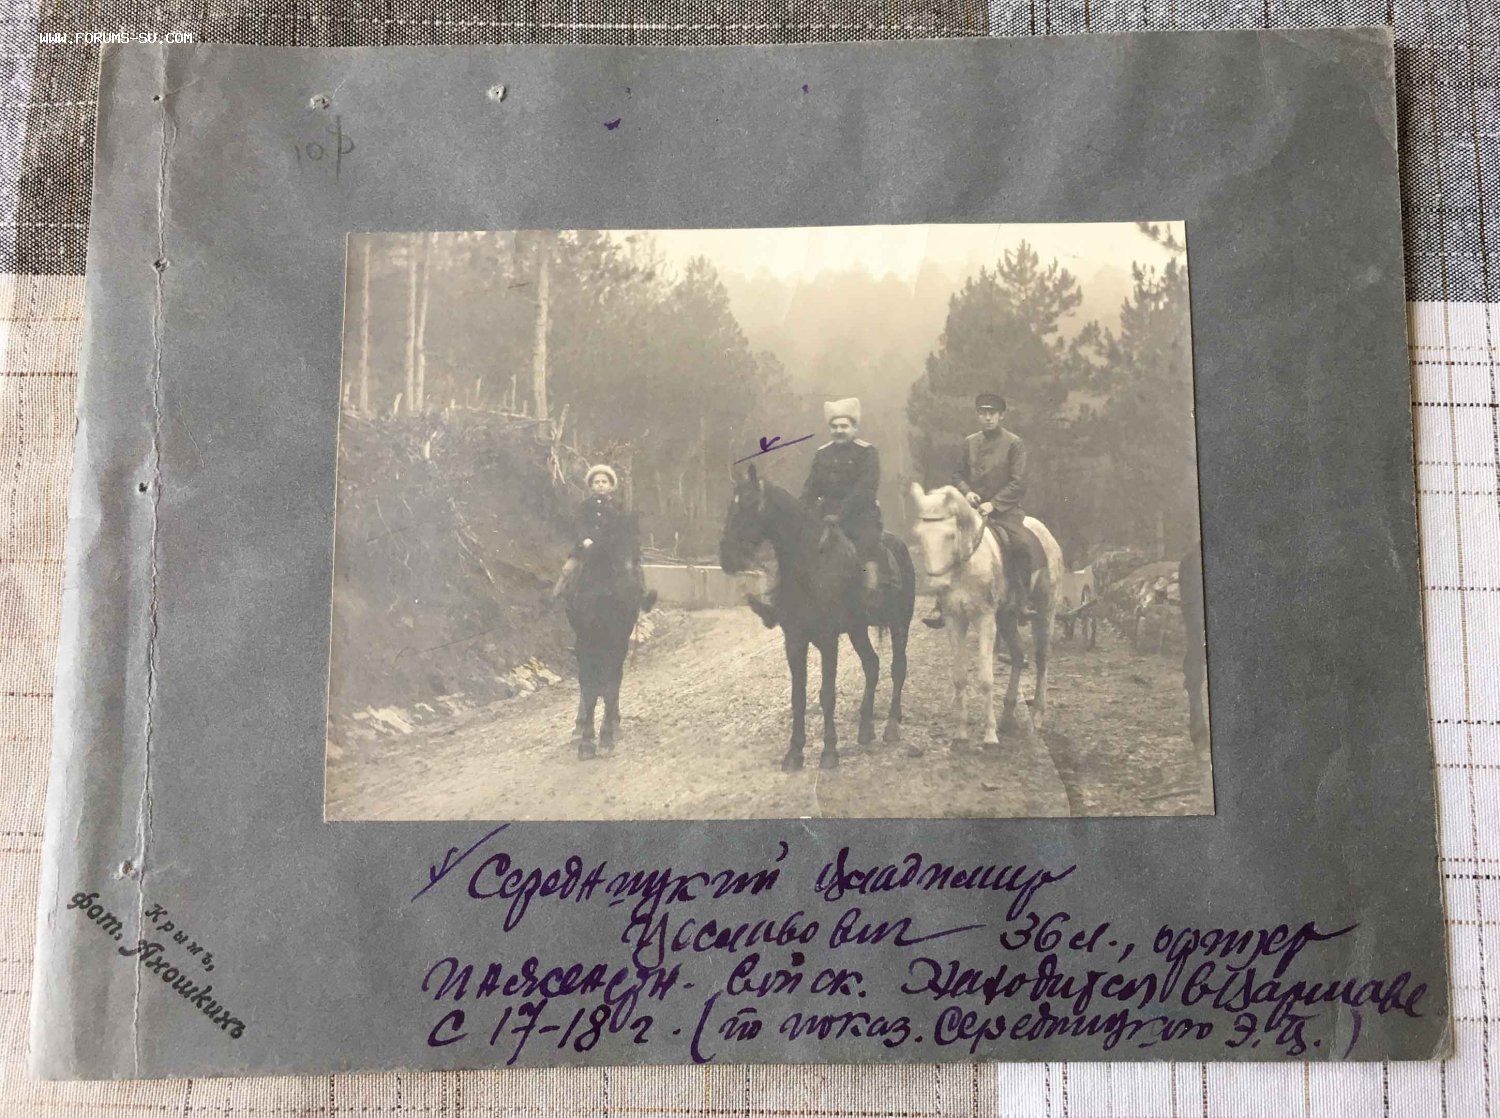 WWW.FORUMS-SU.COM
Крымъ,
Фот. Яношкихъ
Середницкий Владимир
36 л., офицер
инженерн. войск. Находится в Варшаве
с 17-18 г. (по показ. Середницкого Э. В.)